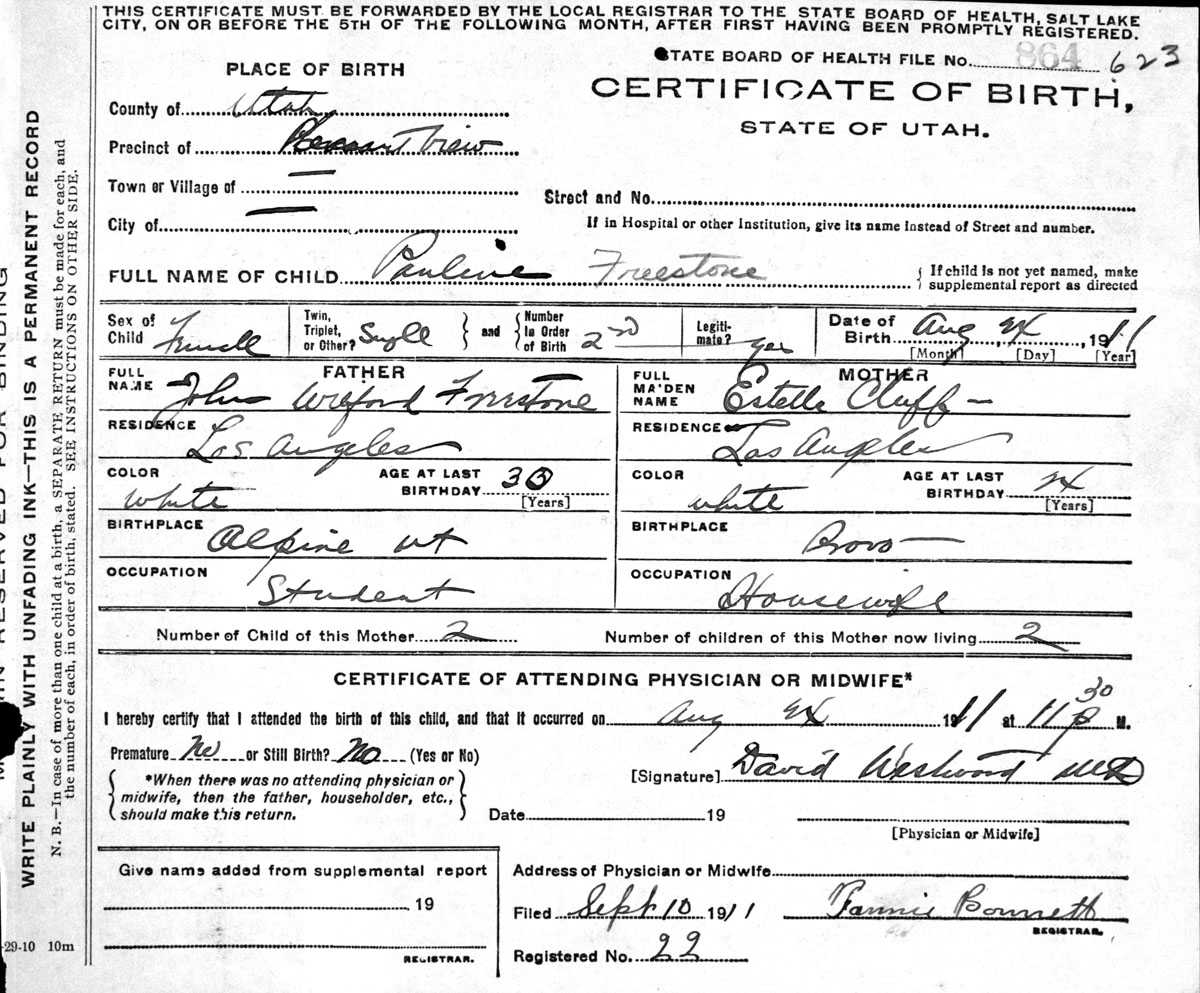 THIS CERTIFICATE MUST BE FORWARDED BY THE LOCAL REGISTRAR TO THE STATE BOARD OF HEALTH, SALT LAKE
CITY, ON OR BEFORE THE 5TH OF THE FOLLOWING MONTH, AFTER FIRST HAVING BEEN PROMPTLY REGISTERED.
STATE BOARD OF HEALTH FILE No. 864 623
PLACE OF BIRTH
CERTIFICATE OF BIRTH,
STATE OF UTAH.
County of Utah
Precinct of Pleasant View
Town or Village of —
Street and No.
City of —
If in Hospital or other Institution, give its name instead of Street and number.
FULL NAME OF CHILD Pauline Freestone
If child is not yet named, make
supplemental report as directed
Sex of Child Female
Twin, Triplet, or Other? Single
and
Number in Order of Birth 2nd
Legiti-mate? yes
Date of Birth Aug 24 1911
[Month] [Day] [Year]
FATHER
FULL NAME John Wilford Freestone
MOTHER
FULL MAIDEN NAME Estella Cluff —
RESIDENCE Los Angeles
RESIDENCE Los Angeles
COLOR white
AGE AT LAST BIRTHDAY 30
[Years]
COLOR white
AGE AT LAST BIRTHDAY 24
[Years]
BIRTHPLACE Alpine Ut
BIRTHPLACE Provo —
OCCUPATION Student
OCCUPATION Housewife
Number of Child of this Mother 2
Number of children of this Mother now living 2
CERTIFICATE OF ATTENDING PHYSICIAN OR MIDWIFE*
I hereby certify that I attended the birth of this child, and that it occurred on Aug 24 1911 at 11 30 P M.
Premature No or Still Birth? No (Yes or No)
*When there was no attending physician or
midwife, then the father, householder, etc.,
should make this return.
[Signature] David Westwood MD
Date 19
[Physician or Midwife]
Give name added from supplemental report
19
REGISTRAR.
Address of Physician or Midwife
Filed Sept 10 1911 Fannie Bonnett
REGISTRAR.
Registered No. 22
-29-10 10m
RESERVED FOR BINDING
WRITE PLAINLY WITH UNFADING INK—THIS IS A PERMANENT RECORD
N. B.—In case of more than one child at a birth, a SEPARATE RETURN must be made for each, and
the number of each, in order of birth, stated. SEE INSTRUCTIONS ON OTHER SIDE.